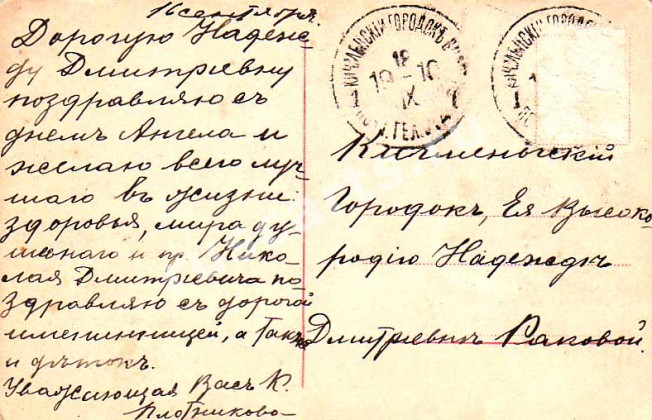 16 сентября.
Дорогую Надеж-
ду Дмитріевну
поздравляю съ
днемъ Ангела и
желаю всего луч-
шаго въ жизни:
здоровья, мира ду-
шевнаго и пр. Нико-
лая Дмитріевича по-
здравляю съ дорогой
именинницей, а также
и дѣтокъ.
Уважающая Васъ К.
Плотникова
КИЧМЕНСКІЙ ГОРОДОКЪ
18
19-10
IX
1 1
ПОЧТ. ТЕЛ.
КИЧМЕНСКІЙ ГОРОДО
1
Кичменьгскій
Городокъ, Ея Высоко-
родію Надеждѣ
Дмитріевнѣ Раковой.